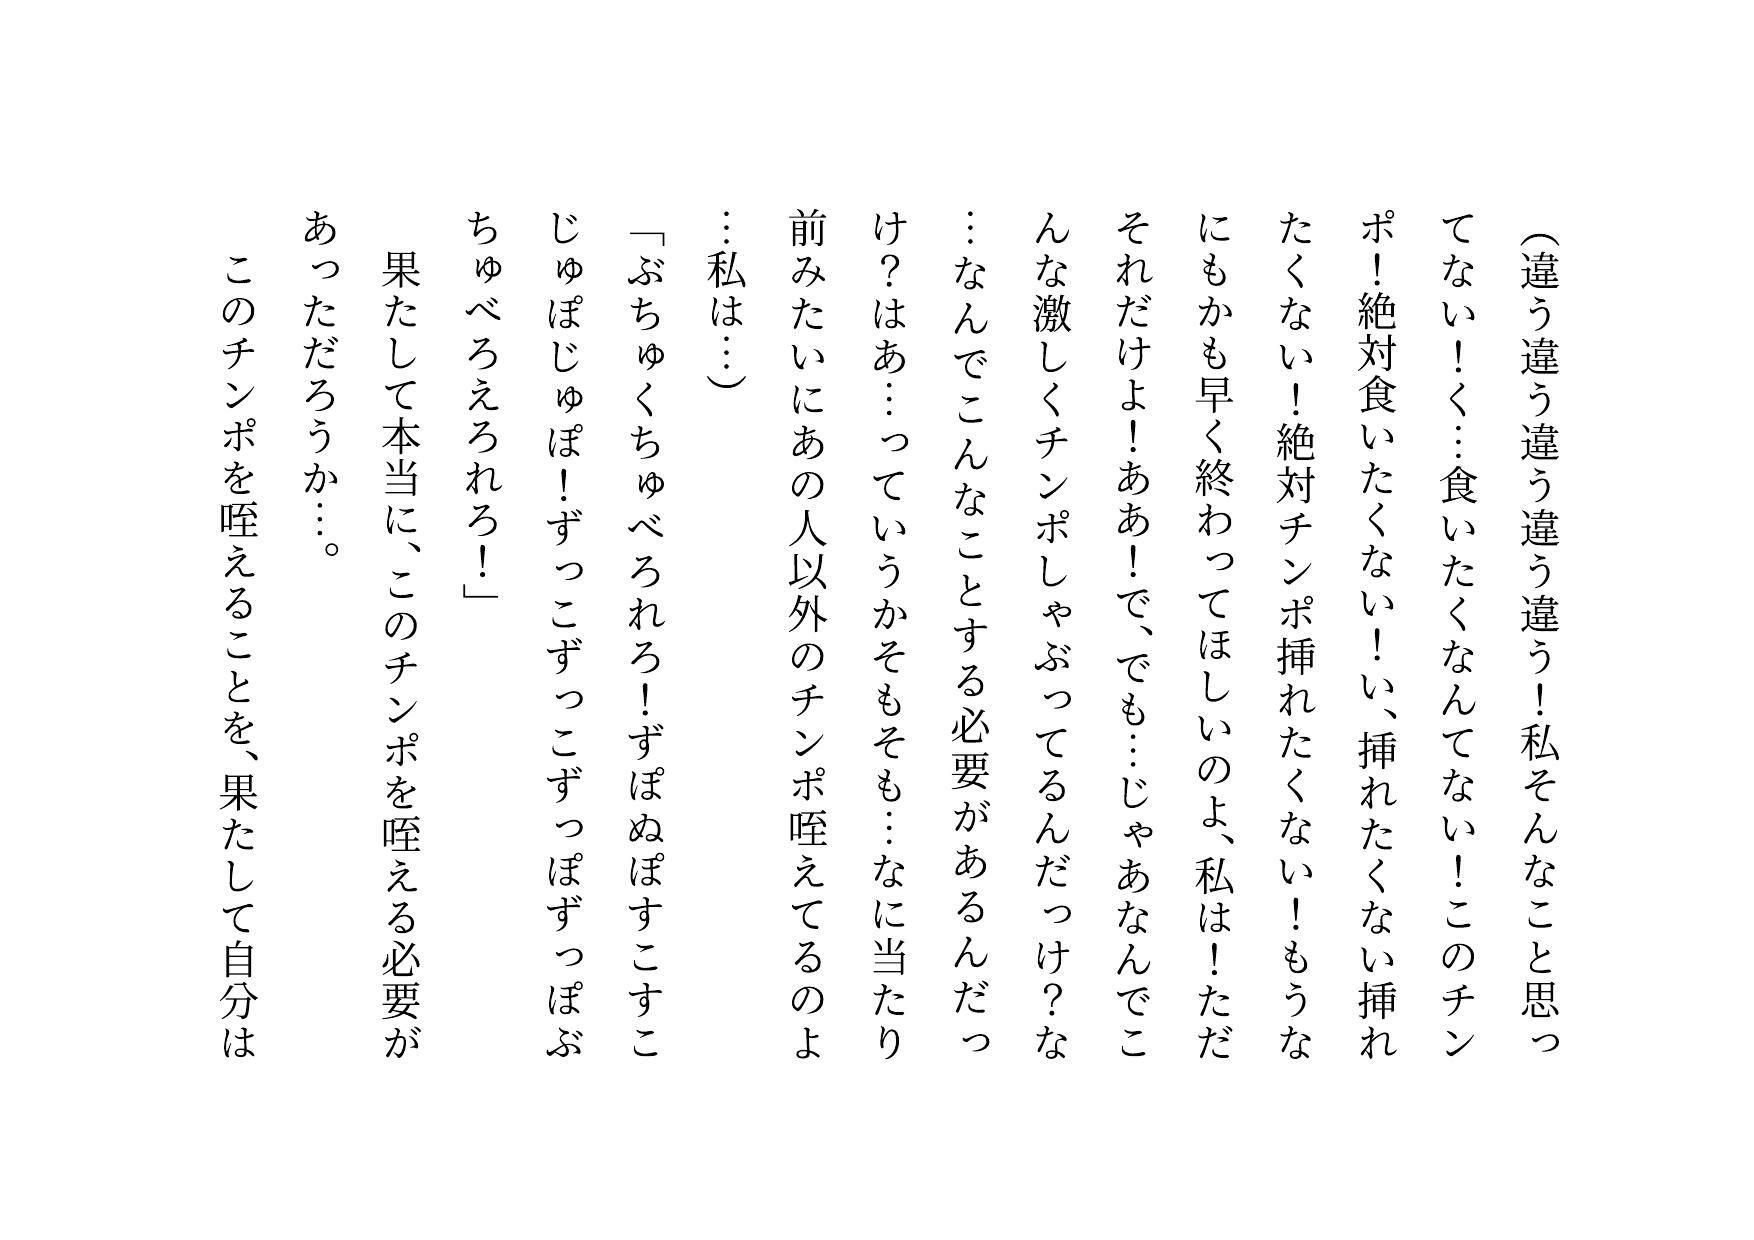 （違う違う違う違う違う！私そんなこと思っ
てない！く…食いたくなんてない！このチン
ポ！絶対食いたくない！い、挿れたくない挿れ
たくない！絶対チンポ挿れたくない！もうな
にもかも早く終わってほしいのよ、私は！ただ
それだけよ！ああ！で、でも…じゃあなんでこ
んな激しくチンポしゃぶってるんだっけ？な
…なんでこんなことする必要があるんだっ
け？はあ…っていうかそもそも…なに当たり
前みたいにあの人以外のチンポ咥えてるのよ
…私は…）
「ぶちゅくちゅべろれろ！ずぽぬぽすこすこ
じゅぽじゅぽ！ずっこずっこずっぽずっぽぶ
ちゅべろえろれろ！」
　果たして本当に、このチンポを咥える必要が
あっただろうか…。
　このチンポを咥えることを、果たして自分は